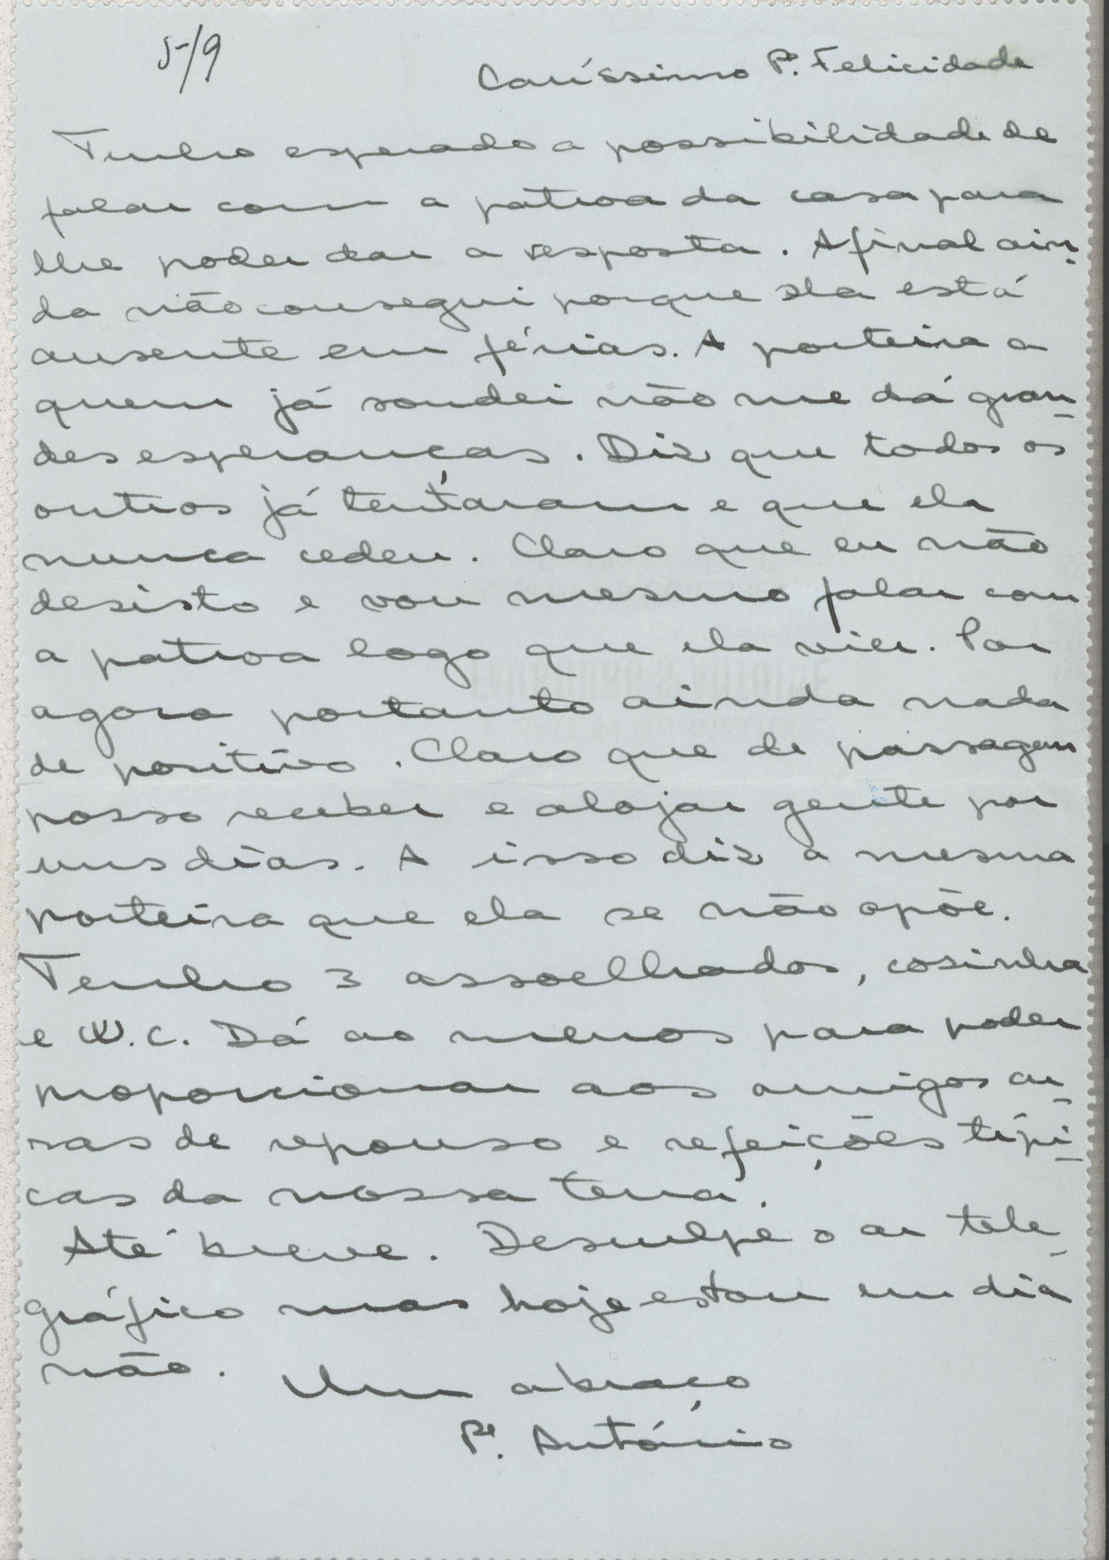 5/9
Caríssimo P. Felicidade
Tenho esperado a possibilidade de
falar com a patroa da casa para
lhe poder dar a resposta. Afinal ain-
da não consegui porque ela está
ausente em férias. A porteira a
quem já sondei não me dá gran-
des esperanças. Diz que todos os
outros já tentaram e que ela
nunca cedeu. Claro que eu não
desisto e vou mesmo falar com
a patroa logo que ela vier. Por
agora portanto ainda nada
de positivo. Claro que de passagem
posso receber e alojar gente por
uns dias. A isso diz a mesma
porteira que ela se não opõe.
Tenho 3 assoelhados, cosinha
e W.C. Dá ao menos para poder
proporcionar aos amigos ca-
sas de repouso e refeições típi-
cas da nossa terra.
Até breve. Desculpe o ar tele-
gráfico mas hoje estou em dia
não.
Um abraço
Pe. António